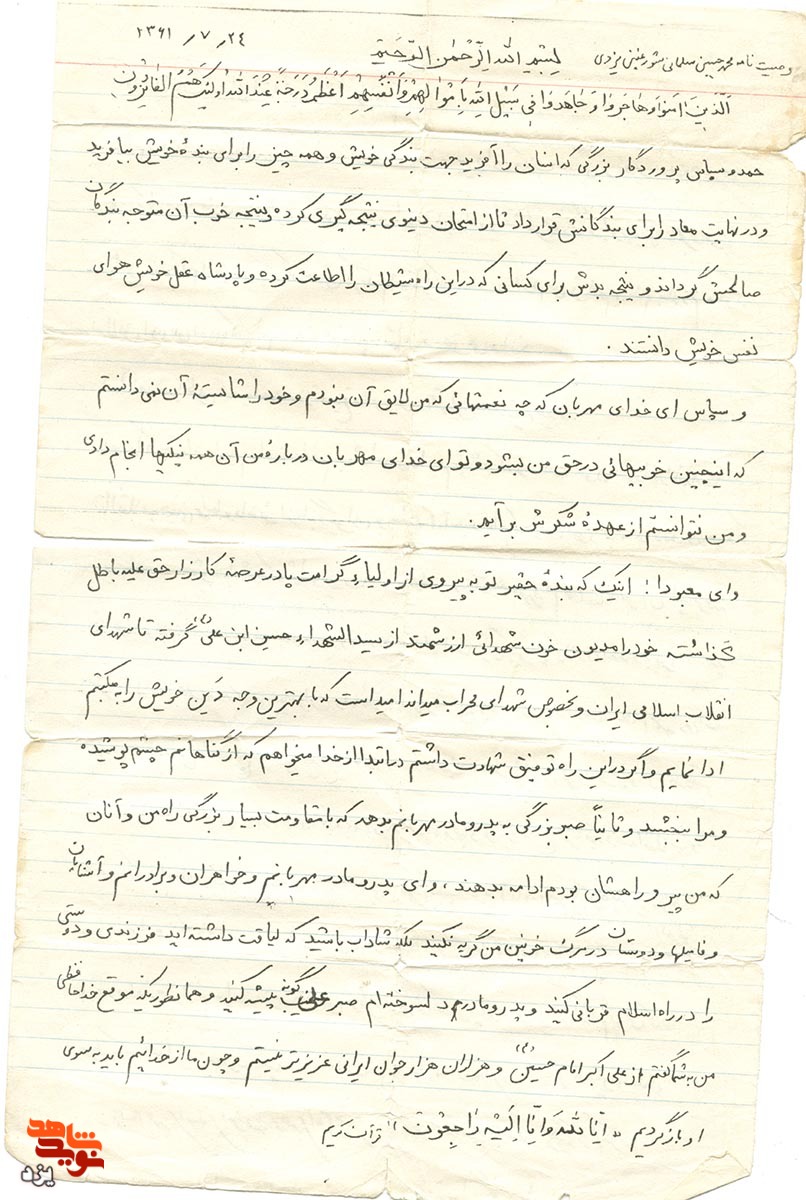 ۱۳۶۱ ٫ ۷ ٫ ۲۴
وصیت نامه محمد حسین سلمانی یزدی
بسم الله الرحمن الرحیم
اَلَّذینَ امَنوا وَهاجَروُا وَجاهَدوُا فی سَبیلِ اللهِ بِاَموالِهِمْ وَاَنْفُسِهِمْ اَعْظَمُ دَرَجَةً عِنْدَ اللهِ اُولئِکَ هُمُ الفائِزونَ
حمد و سپاس پروردگار بزرگی که انسان را آفرید جهت بندگی خویش و همه چیز را برای بندهٔ خویش بیافرید
و در نهایت معاد را برای بندگانش قرار داد تا از امتحان دنیوی نتیجه گیری کرده و نتیجه خوب آن متوجه بندگان
صالحش گرداند و نتیجه بدش برای کسانی که در این راه شیطان را اطاعت کرده و پادشاه عقل خویش هوای
نفس خویش دانستند .
و سپاس ای خدای مهربان که چه نعمتهائی که من لایق آن نبودم و خود را شایستهٔ آن نمی دانستم
که اینچنین خوبیهائی در حق من بشود و تو ای خدای مهربان دربارهٔ من آن همه نیکیها انجام دادی
و من نتوانستم از عهدهٔ شکرش برآیم .
وای معبودا ! اینک که بندهٔ حقیر تو به پیروی از اولیاء گرامت پا در عرصهٔ کارزار حق علیه باطل
گذاشته خود را مدیون خون شهدائی ارزشمند از سیدالشهداء حسین ابن علی (ع) گرفته تا شهدای
انقلاب اسلامی ایران و بخصوص شهدای محراب میداند امید است که با بهترین وجه دَین خویش را به مکتبم
ادا نمایم و اگر در این راه توفیق شهادت داشتم در ابتدا از خدا میخواهم که از گناهانم چشم پوشیده
و مرا ببخشد و ثانیاً صبر بزرگی به پدر و مادر مهربانم بدهد که با مقاومت بسیار بزرگی راه من و آنان
که من پیرو راهشان بودم ادامه بدهند ، وای پدر و مادر مهربانم و خواهران و برادرانم و آشنایان
و فامیلها و دوستان در مرگ خونین من گریه نکنید بلکه شاداب باشید که لیاقت داشته اید فرزندی و دوستی
را در راه اسلام قربانی کنید و پدر و مادر دلسوخته ام صبر گونه پیشه کنید و همانطوریکه موقع خداحافظی
من به شما گفتم از علی اکبر امام حسین (ع) و هزاران هزار جوان ایرانی عزیزتر نیستم و چون ما از خدائیم باید به سوی
او بازگردیم « اِنّا لِلّهِ وَ اِنّا اِلَیْهِ راجِعُونَ » قرآن کریم
نوید شاهد
یزد